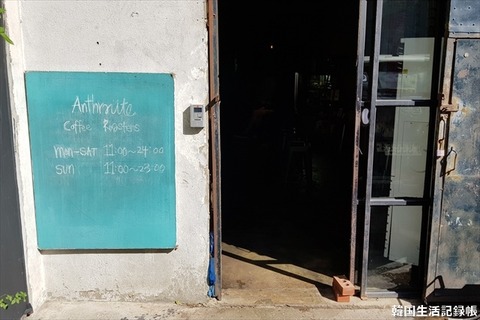 Anthracite
Coffee Roasters
MON-SAT 11:00~24:00
SUN 11:00~23:00
韓国生活記録帳